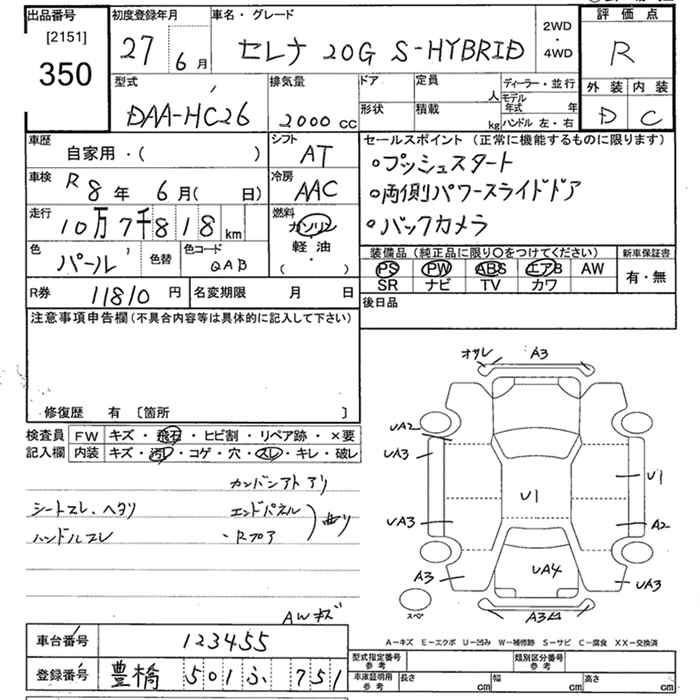 出品番号
[2151]
350
初度登録年月
27 6月
車名・グレード
セレナ 20G S-HYBRID
2WD
・
4WD
評価点
R
外装 内装
D C
型式
DAA-HC26
排気量
2000 cc
ドア
定員
人
形状
積載
kg
ディーラー・並行
モデル年式 年
ハンドル 左・右
車歴
自家用・( )
シフト
AT
車検
R 8年 6月( 日)
冷房
AAC
走行
10万7千818 km
燃料
ガソリン
軽油
( ・ )
色
パール
色替
色コード
QAB
セールスポイント (正常に機能するものに限ります)
○プッシュスタート
○両側パワースライドドア
○バックカメラ
装備品 (純正品に限り〇をつけてください)
PS PW ABS エアB AW
SR ナビ TV カワ
新車保証書
有・無
R券 11810 円
名変期限 月 日
後日品
注意事項申告欄 (不具合内容等は具体的に記入して下さい)
修復歴 有 〔箇所 〕
検査員
記入欄
FW キズ・飛石・ヒビ割・リペア跡・×要
内装 キズ・汚レ・コゲ・穴・スレ・キレ・破レ
カンバンアトアリ
シートスレ、ヘタリ
エンドパネル
ハンドルスレ
・Rフロア
曲り
AWキズ
オサレ
A3
UA2
UA3
UA3
A3
U1
U1
A2
UA3
UA4
A3
スペア
A-キズ E-エクボ U-凹み W-補修跡 S-サビ C-腐食 XX-交換済
車台番号 123455
登録番号 豊橋 501 ふ 751
型式指定番号
参考
類別区分番号
参考
車庫証明用
参考
長さ cm
幅 cm
高さ cm